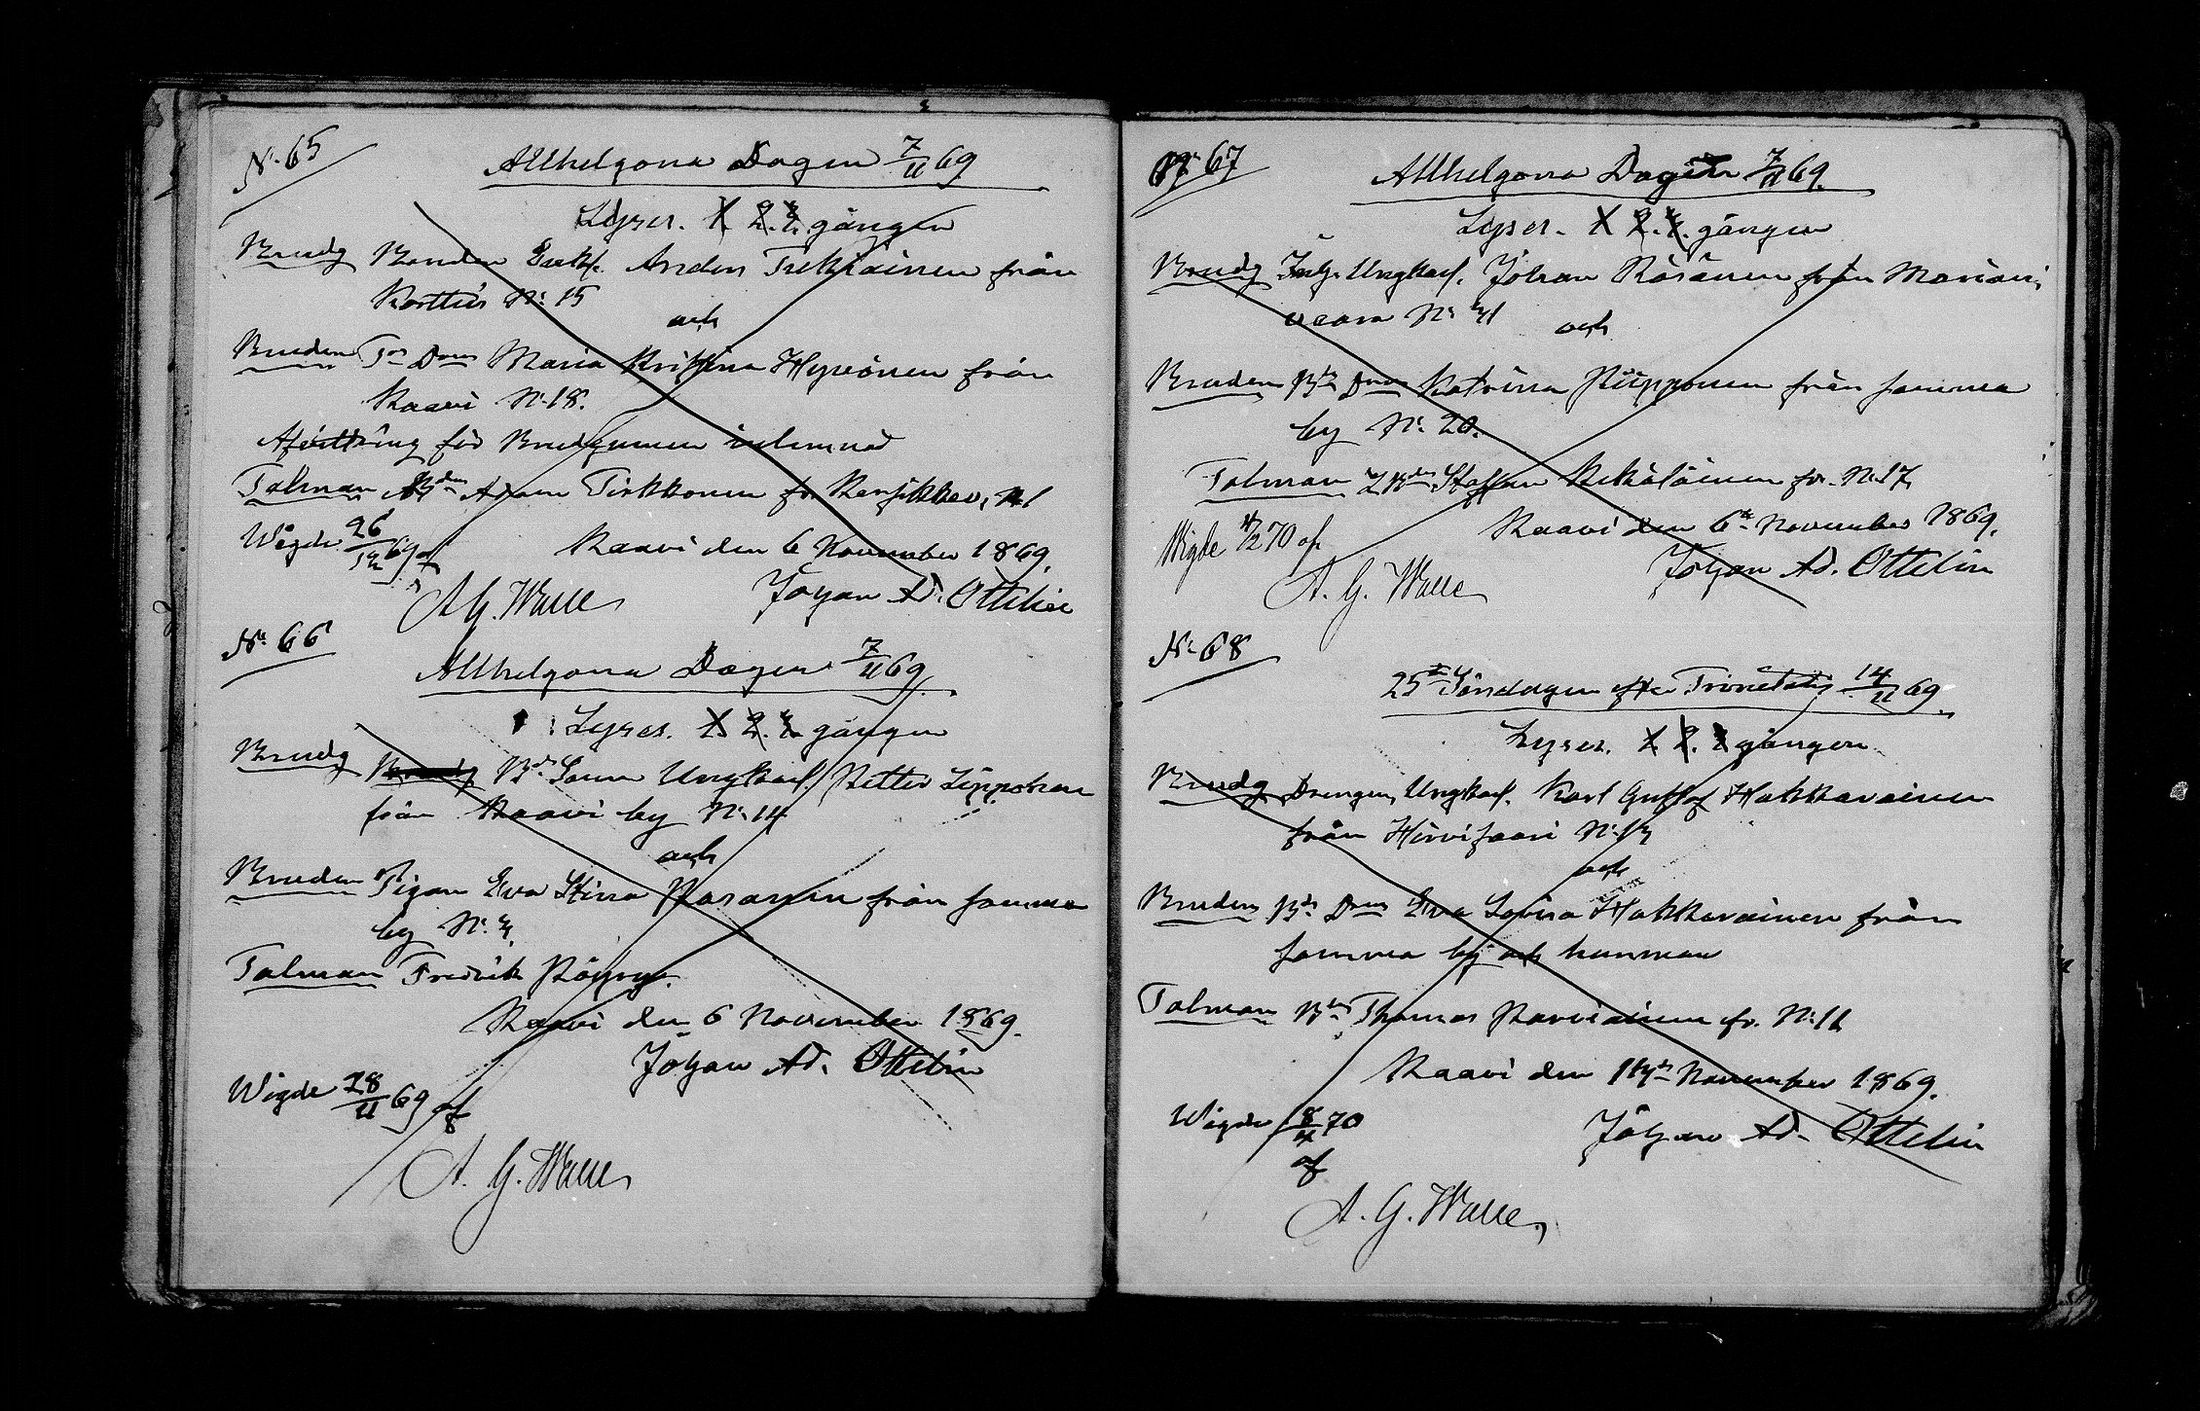 N: 65
Allhelgona Dagen 7/11 69
Lyses. 1. 2. 3. gången
Brudg Bonden Enkl. Anders Tirkkoinen från
Korttes N: 15
och
Bruden Drn Maria Kristina Hyvönen från
Kaavi N: 18.
Afvittring för Brudgumen inlemnad
Talman Bden Adam Tirkkonen fr N1
Wigde 26/12 69 af
Kaavi den 6 November 1869.
A G. Walle
Johan Ad. Ottelin
N: 66
Allhelgona Dagen 7/11 69
Lyses. 1. 2. 3. gången
Brudg Brudg Bd. Sonen Ungkarl. Petter Lipponen
från Kaavi by N: 14
och
Bruden Pigan Eva Stina Pasanen från samma
by N: 3.
Talman Fredrik
Kaavi den 6 November 1869.
Johan Ad. Ottelin
Wigde 28/11 69 af
A. G. Walle
N: 67
Allhelgona Dagen 7/11 69.
Lyses. 1. 2. 3. gången
Brudg Ungkarl. Johan Räsänen från Mariani
vaara N: 31
och
Bruden Bds Dren Katrina Piipponen från samma
by N: 20.
Talman Bden Staffan fr. N: 17
Wigde 4/2 70 af
Kaavi den 6te November 1869.
A. G. Walle
Johan Ad. Ottelin
N: 68
25te Söndagen efter Trinitatis 14/11 69.
Lyses. 1. 2. 3 gången
Brudg Drengen, Ungkarl. Karl Gustaf Hakkarainen
från Hirvisaari N: 13
och
Bruden Bds Dren Eva Lovisa Hakkarainen från
samma by och hemman
Talman Bden Thomas Parviainen fr. N: 11
Kaavi den 13de November 1869.
Wigde 8/4 70
af
Johan Ad. Ottelin
A. G. Walle